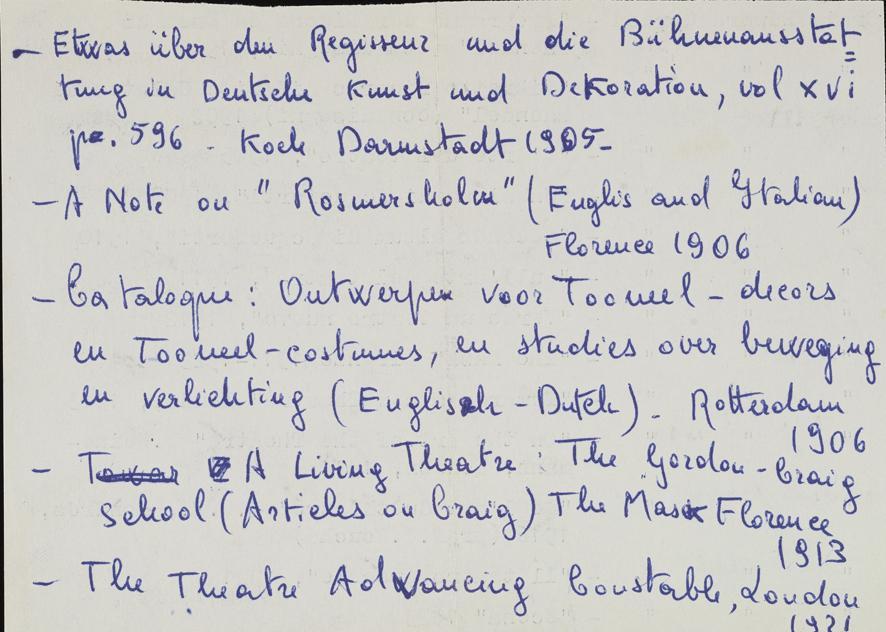 – Etwas über den Regisseur und die Bühnenausstat=
tung in Deutsche Kunst und Dekoration, vol xvi
pe. 596 - Koch Darmstadt 1905-
– A Note on "Rosmersholm" (Englis and Italian)
Florence 1906
– Catalogue: Ontwerpen voor Tooneel-decors
en Tooneel-costumes, en studies over beweging
en verlichting (English-Dutch). Rotterdam
1906
– A Living Theatre: The Gordon-Craig
School (Articles on Craig) The Mask Florence
1913
– The Theatre Advancing Constable, London
1921